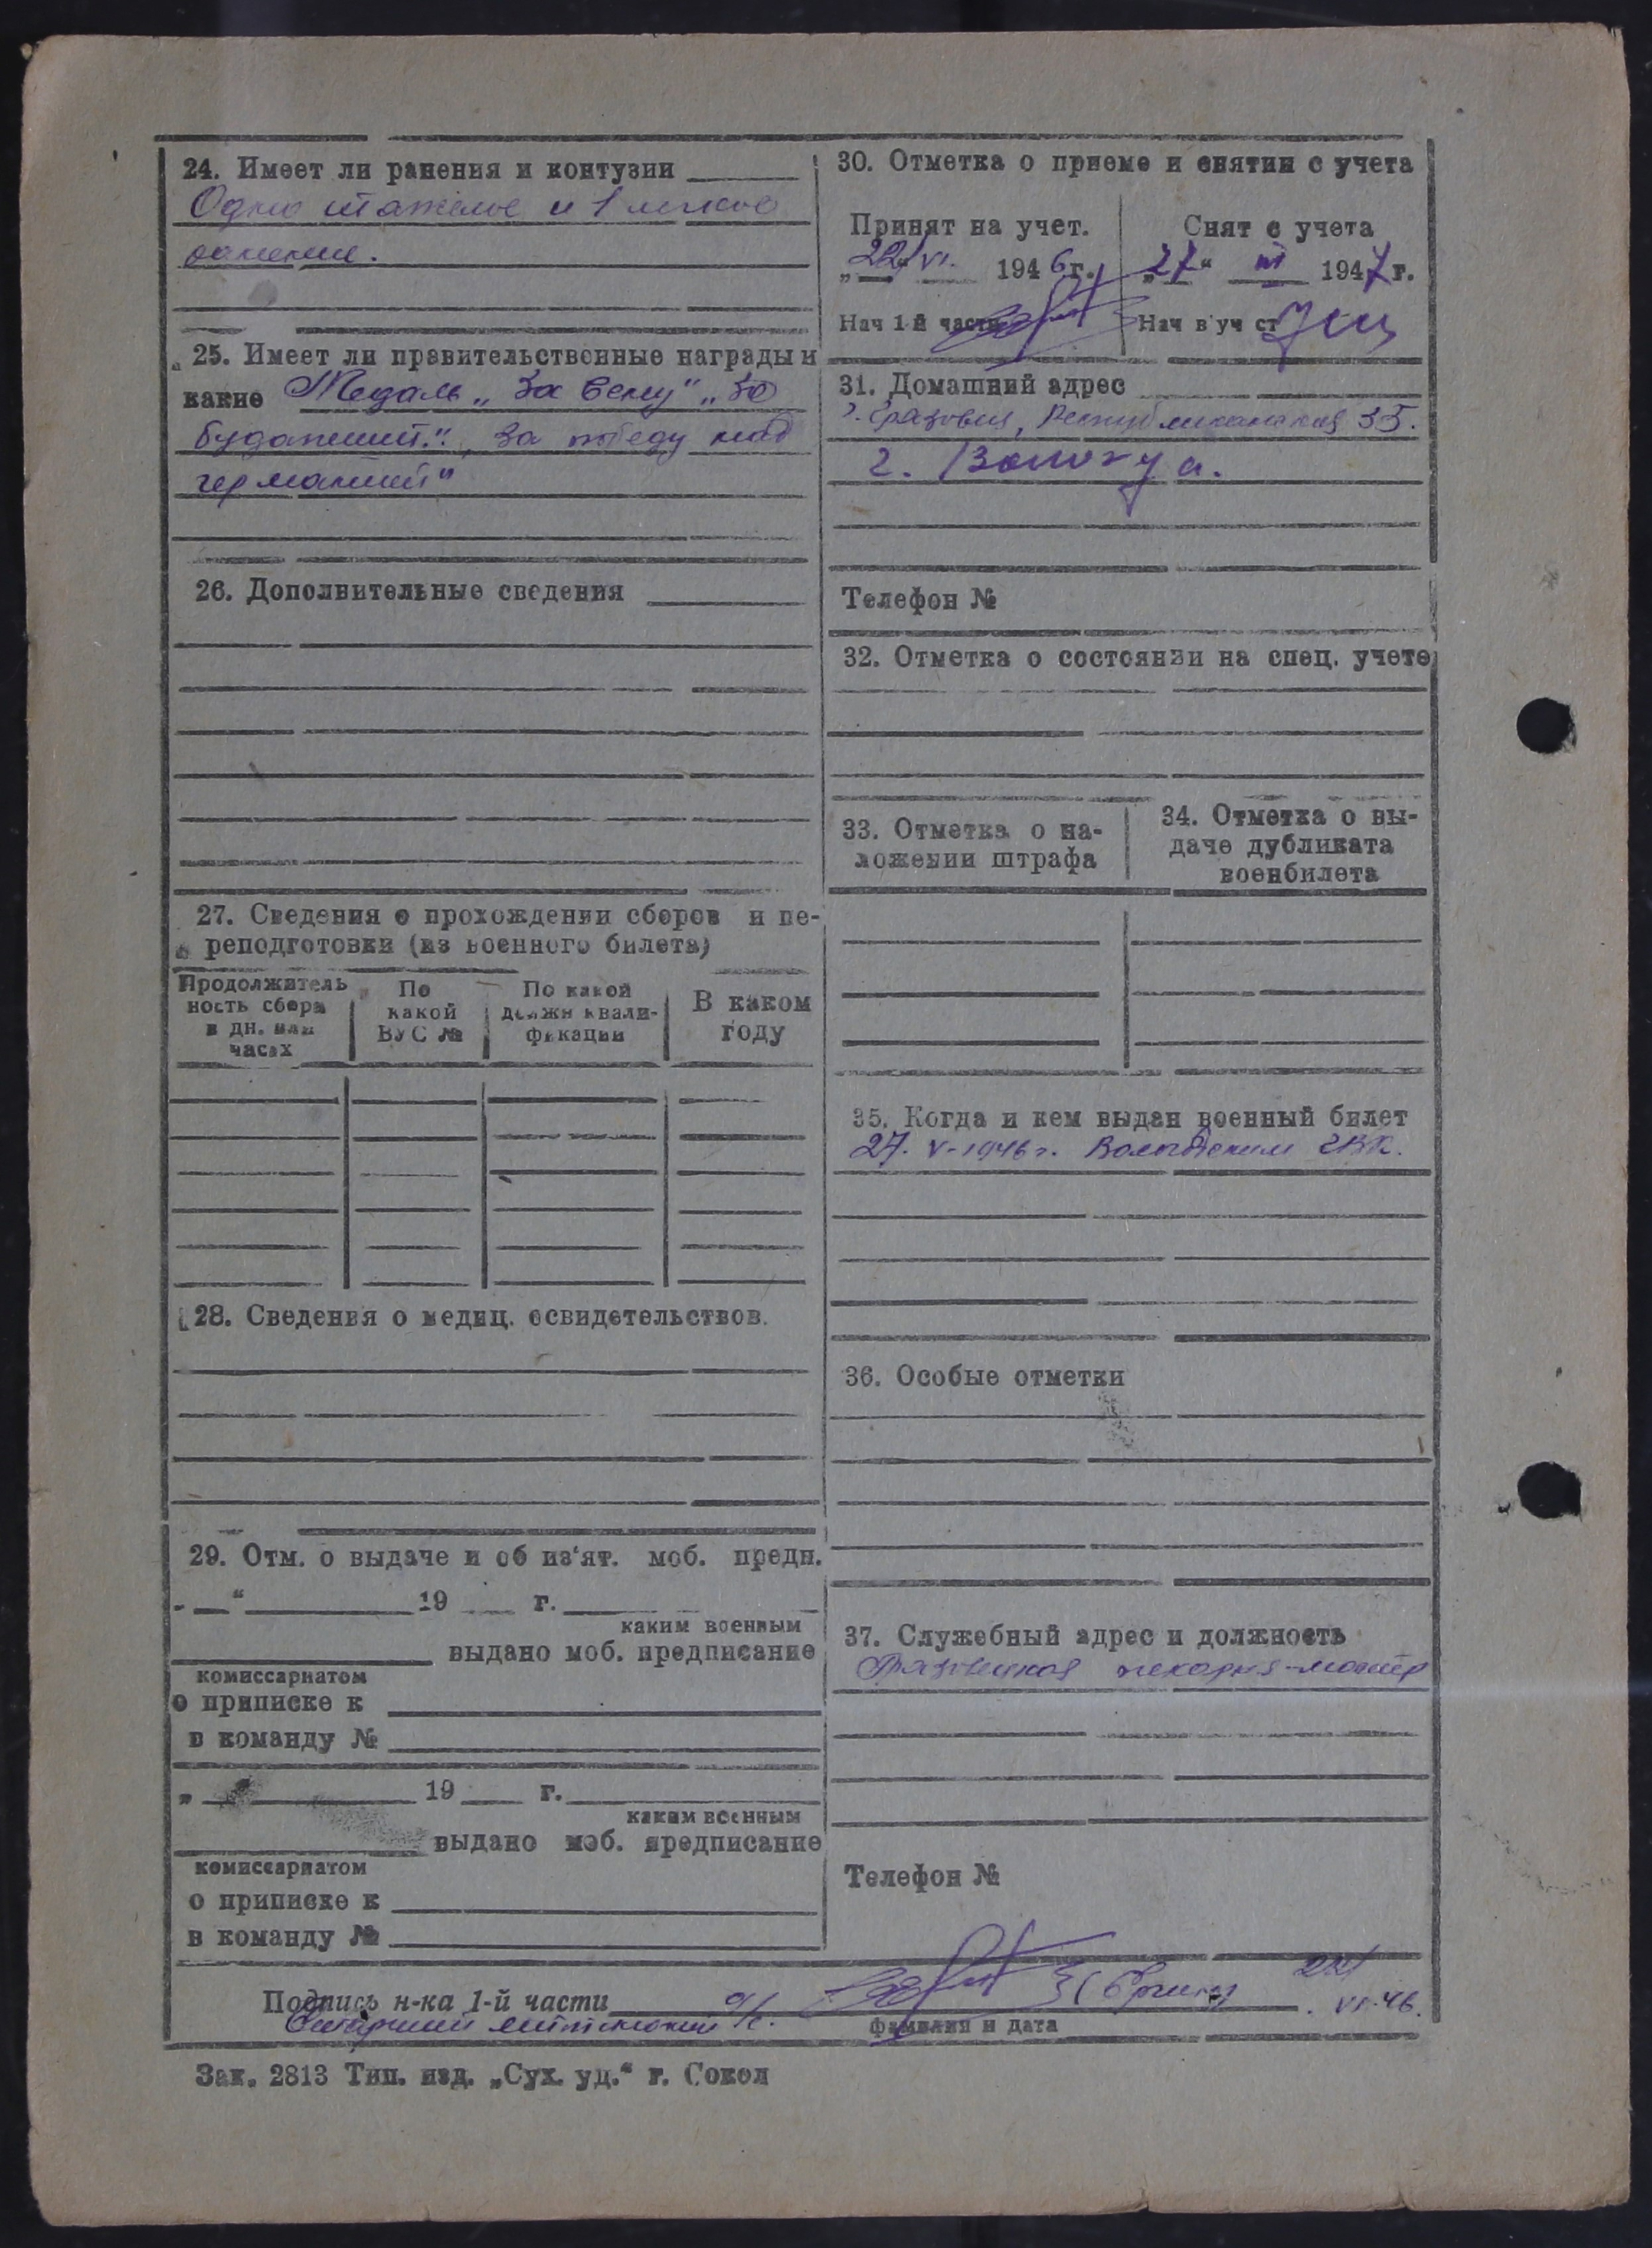 24. Имеет ли ранения и контузии
Одно тяжелое и 1 легкое
ранение.
25. Имеет ли правительственные награды и
какие Медаль „За Вену" „За
будапешт.", За победу над
германией"
26. Дополнительные сведения
27. Сведения о прохождении сборов и пе-
реподготовки (из военного билета)
Продолжитель
ность сбора
в дн. или
часах
По
какой
ВУС №
По какой
должн квали-
фикации
В каком
году
28. Сведения о медиц. освидетельствов.
29. Отм. о выдаче и об из'ят. моб. предп.
„ “ 19 г.
каким военным
выдано моб. предписание
комиссариатом
о приписке к
в команду №
„ 19 г.
каким военным
выдано моб. предписание
комиссариатом
о приписке к
в команду №
30. Отметка о приеме и снятии с учета
Принят на учет.
„22" VI. 1946г.
Нач 1-й части
Снят с учета
„27“ III 1947г.
Нач в уч ст
31. Домашний адрес
г. Грязовец, Республиканская 35.
г. Вологда.
Телефон №
32. Отметка о состоянии на спец. учете
33. Отметка о на-
ложении штрафа
34. Отметка о вы-
даче дубликата
военбилета
35. Когда и кем выдан военный билет
27. V-1946г. Вологодским ГВК.
36. Особые отметки
37. Служебный адрес и должность
Грязовецкая пекарня-мастер
Телефон №
Подпись н-ка 1-й части
Старший лейтенант а/с.
22/
VI-46.
фамилия и дата
Зак. 2813 Тип. изд. „Сух. уд.“ г. Сокол